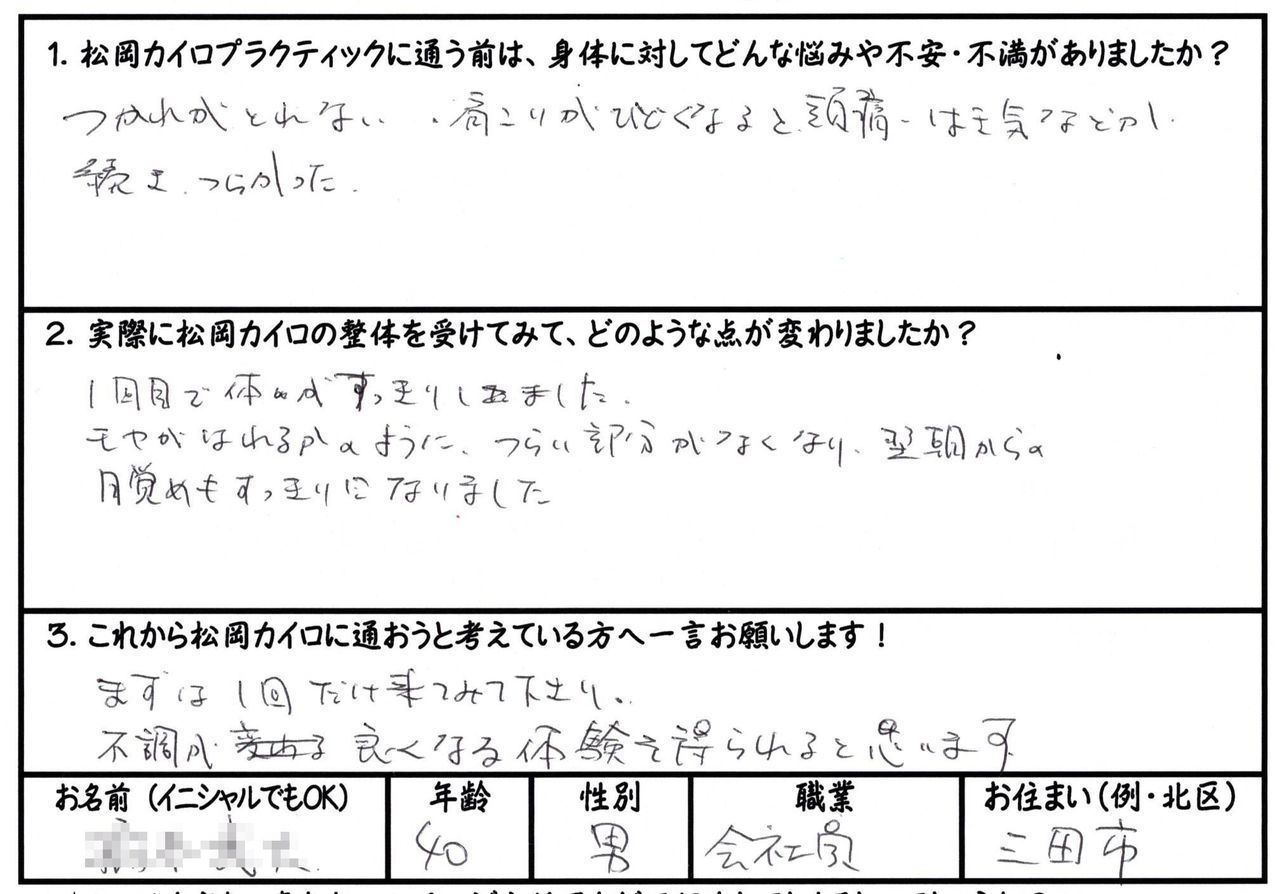 1. 松岡カイロプラクティックに通う前は、身体に対してどんな悩みや不安・不満がありましたか？
つかれがとれない、肩こりがひどくなると、頭痛・はき気などがし
続き、つらかった.
2. 実際に松岡カイロの整体を受けてみて、どのような点が変わりましたか？
1回目で体のがすっきりしました.
モヤがはれるかのように、つらい部分がなくなり、翌朝からの
目覚めもすっきりになりました
3. これから松岡カイロに通おうと考えている方へ一言お願いします！
まずは1回だけ来てみて下さい。
不調が良くなる体験を得られると思います
お名前（イニシャルでもOK） 年齢 性別 職業 お住まい（例・北区）
40 男 会社員 三田市